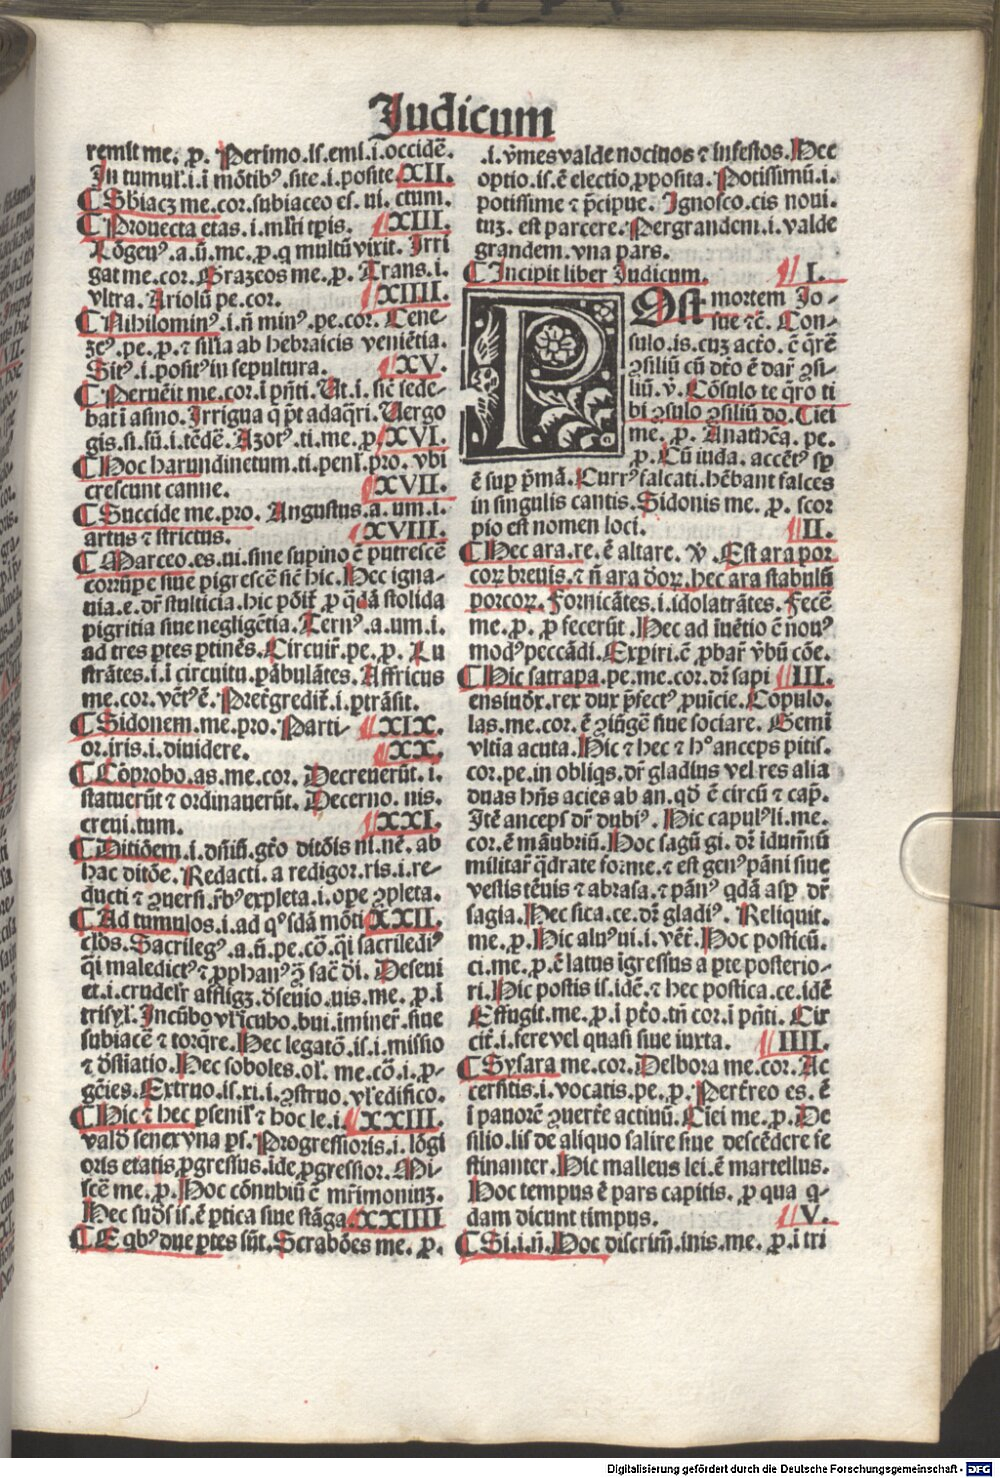 Judicum
remit me. ꝓ. Perimo. is. emi. i. occidē.
In tumul'. i. ī mōtibꝰ. site. i. posite. XII.
¶ Sbiacꝫ me. cor. subiaceo es. ui. ctum.
¶ Prouecta etas. i. mſti tꝑis. XIII.
Lōgeuꝰ. a. ū. me. ꝓ. q multū vixit. Irri
gat me. cor. Brazeos me. ꝓ. Trans. i.
vltra. Ariolū pe. cor. XIIII.
¶ Nihilominꝰ. i. ñ minꝰ. pe. cor. Cene-
zeꝰ. pe. ꝓ. ⁊ silia ab hebraicis veniētia.
Sitꝰ. i. positꝰ in sepultura. XV.
¶ Peruēit me. cor. i p̄nti. Ut. i. sic̄ sede-
bat ī asino. Irrigua q̄ p̄t adaq̄ri. Uergo
gis. si. sū. i. tēdē. Azotꝰ. ti. me. ꝓ. XVI.
¶ Hoc harundinetum. ti. penl'. pro. vbi
crescunt canne. XVII.
¶ Succide me. pro. Angustus. a. um. i.
artus ⁊ strictus. XVIII.
¶ Marceo. es. ui. sine supino ē putrescē
corrūpe siue pigrescē sic̄ hic. Hec igna-
uia. e. dr̄ stulticia. hic pōit̄ ꝓ q̄dā stolida
pigritia siue negligētia. Ternꝰ. a. um. i.
ad tres ꝑtes ꝑtinēs. Circuir̄. pe. ꝓ. Lu
strātes. i. ī circuitu. ꝑābulātes. Affricus
me. cor. vētꝰ ē. Pret̄gredit̄. i. ꝑtrāsit.
¶ Sidonem. me. pro. Parti- XIX.
or. iris. i. diuidere. XX.
¶ Cōprobo. as. me. cor. Decreuerūt. i.
statuerūt ⁊ ordinauerūt. Decerno. nis.
creui. tum. XXI.
¶ Ditiōem. i. dn̄iū. gto ditōis ni. nē. ab
hac ditōe. Redacti. a redigor. ris. i. re-
ducti ⁊ ꝯuersi. r̄bꝰ expleta. i. ope ꝯpleta.
¶ Ad tumulos. i. ad qꝰsdā mōti XXII.
clos. Sacrilegꝰ. a. ñ. pe. cō. q̄i sacriledꝰ
q̄i maledictꝰ ⁊ ꝓphanꝰ ꝯ̄ sac̄ dī. Deseui
et. i. crudelr̄ affligꝫ. d̄seuio. uis. me. ꝓ. ī
trisyl'. Incūbo vl' īcubo. bui. īminer̄. siue
subiacē ⁊ torq̄re. Hec legatō. is. i. missio
⁊ d̄stiatio. Hec soboles. ol'. me. cō. i. ꝓ-
gēies. Extruo. is. xi. i. ꝯstruo. vl' edifico.
¶ Hic ⁊ hec ꝑsenil' ⁊ hoc le. i. XXIII.
vald̄ senex vna ꝑs. Progressioris. i. lōgi
oris etatis ꝓgressus. īde ꝓgressior. Mi-
scē me. ꝓ. Hoc cōnubiū ē mr̄imoniuꝫ.
Hec sud̄s is. ē ꝑtica siue stāga. XXIIII
¶ E qbꝰ due ꝑtes sūt. Scrabōes me. ꝓ.
.i. v̄mes valde nociuos ⁊ infestos. Hec
optio. is. ē electio ꝓposita. Potissimū. i.
potissime ⁊ p̄cipue. Ignosco. cis noui.
tuꝫ. est parcere. Pergrandem. i. valde
grandem. vna pars.
¶ Incipit liber Judicum. I.
POst mortem Jo-
sue ⁊c̄. Con-
sulo. is. cuꝫ actō. ē q̄rē
ꝯsiliū cū dtō ē dar̄ ꝯsi-
liū. v̄. Cōsulo te q̄ro ti
bi ꝯsulo ꝯsiliū do. Ciei
me. ꝓ. Anathēa. pe.
ꝓ. Cū iuda. accētꝰ sꝑ
ē suꝑ p̄mā. Currꝰ falcati. hēbant falces
in singulis cantis. Sidonis me. ꝓ. scor
pio est nomen loci. II.
¶ Hec ara. re. ē altare. v̄. Est ara por
coꝝ breuis. ⁊ ñ ara d̄oꝝ. hec ara stabulū
porcoꝝ. Fornicātes. i. idolatrātes. Fecē
me. ꝓ. ꝓ fecerūt. Hec ad īuētio ē nouꝰ
modꝰ peccādi. Expiri. ē ꝓbar̄ v̄bū cōe.
¶ Hic satrapa. pe. me. cor. dr̄ sapi III.
ensiudx. rex dux p̄fectꝰ ꝓuīcie. Copulo.
las. me. cor. ē ꝯiūgē siue sociare. Gemī
vltia acuta. Hic ⁊ hec ⁊ hᵒ anceps pitis.
cor. pe. in obliqs. dr̄ gladius vel res alia
duas hn̄s acies ab an. qd̄ ē circū ⁊ cap̄.
Itē anceps dr̄ dubiꝰ. Hic capulꝰ li. me.
cor. ē māubriū. Hoc sagū gi. dr̄ idumtū
militar̄ q̄drate forme. ⁊ est genꝰ pāni siue
vestis tēuis ⁊ abrasa. ⁊ pānꝰ qdā asꝑ dr̄
sagia. Hec sica. ce. dr̄ gladiꝰ. Reliquit.
me. ꝓ. Hic aluꝰ ui. i. vēt̄. Hoc posticū.
ci. me. ꝓ. ē latus īgressus a ꝑte posterio-
ri. Hic postis is. idē. ⁊ hec postica. ce. idē
Effugit. me. ꝓ. i p̄tō. tn̄ cor. i p̄nti. Cir
cit̄. i. fere vel quasi siue iuxta. IIII.
¶ Sysara me. cor. Delbora me. cor. Ac
cersitis. i. vocatis. pe. ꝓ. Pert̄reo es. ē
ī pauorē ꝯuert̄e actiuū. Ciei me. ꝓ. De
silio. lis de aliquo salire siue descēdere fe
stinanter. Hic malleus lei. ē martellus.
Hoc tempus ē pars capitis. ꝓ qua q-
dam dicunt timpus. V.
¶ Si. i. ñ. Hoc discrim̄. inis. me. ꝓ. i tri
Digitalisierung gefördert durch die Deutsche Forschungsgemeinschaft - DFG